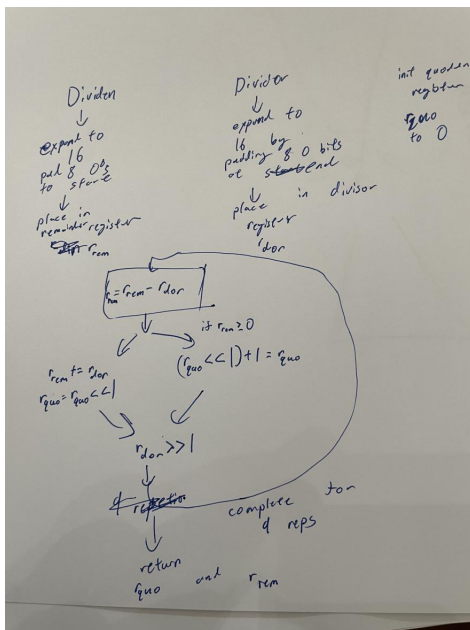 Dividen
expand to
16
pad 8 0's
to start
place in
remainder register
r_rem
Divider
expand to
16 by
padding 8 0 bits
at end
place in divisor
register
r_dor
init quoden
register
r_quo
to 0
r_rem = r_rem - r_dor
if r_rem ≥ 0
r_rem += r_dor
r_quo = r_quo << 1
(r_quo << 1) + 1 = r_quo
r_dor >> 1
complete for
9 reps
return
r_quo and r_rem